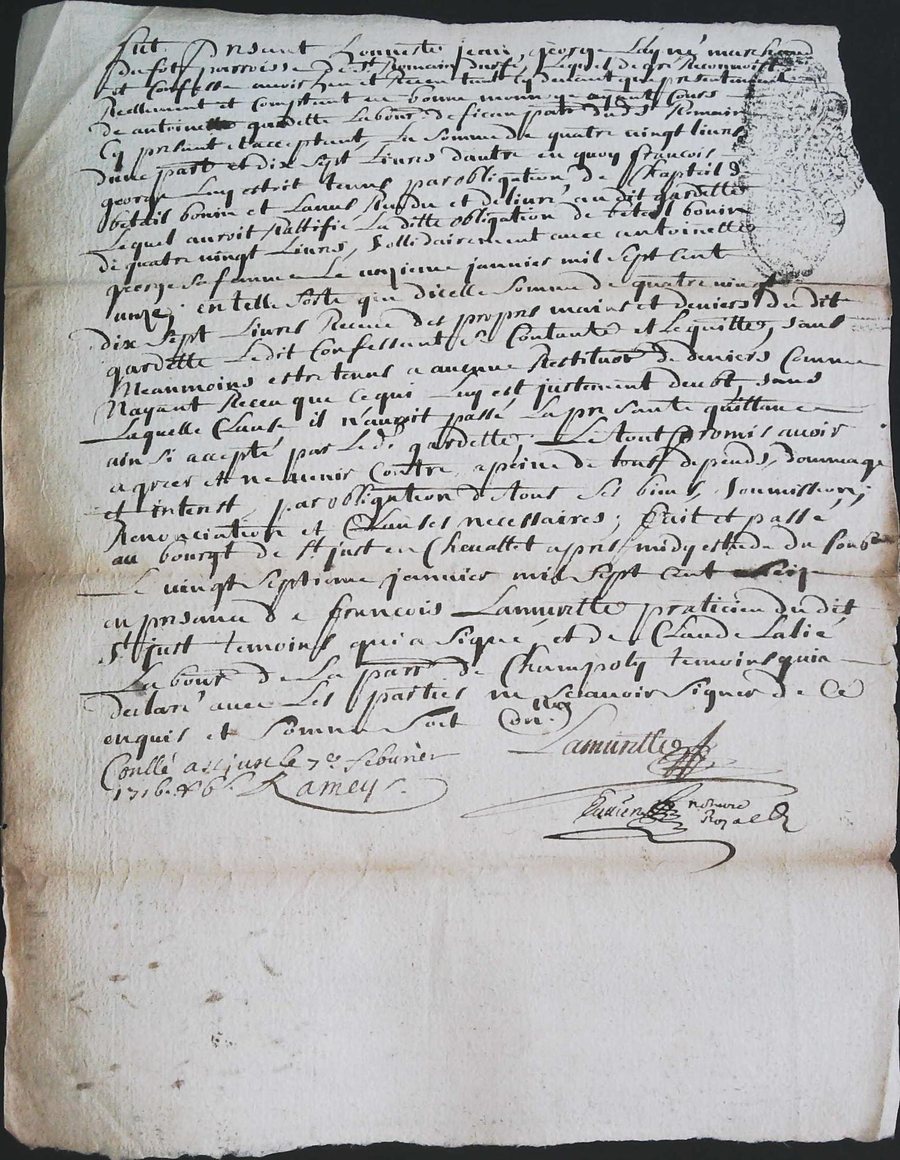 Fut présent honneste jean george Layné marchand
du fot parroisse de st Romain durfé, Lequel de gré Reconnoist
et Confesse avoir heu et Receu tant cy devant que presentement
Reellement et Comptant en bonne monnoye ayant Cours
de antoine gardette Laboureur de ficun parr dud st Romain
Cy present et acceptant, La somme de quatre vingt livres
d'une part et dix sept Livres d'autre en quoy françois
george Luy estoit tenus par obligation de Chapteil &
betail bonin et Lanus, Rendu et delivré, au dit gardette
Lequel auroit Rattifié La ditte obligation de betail bonin
de quatre vingt Livres, sollidairement avec antoinette
george sa femme Le unzieme janvier mil sept cent
unze; en telle sorte qu'en dicelle somme de quatre vingt
dix sept Livres Receue des propres mains et deniers du dit
gardette Ledit Confessant se Contante et Le quitte, sans
Neanmoins estre tenus a aucune Restitution de deniers Comme
Nayant Receu que ce qui Luy est justement deubt, sans
Laquelle Clause il n'auroit passé La presante quittance
ainsi accepté par Led. gardette. Le tout Promis avoir
agreer et ne venir Contre, a peine de tous depends, dommage
et interest, par obligation de tous ses biens, soumissions;
Renonciation et Clauses necessaires; fait et passé
au bourgt de st just en Chevallet apres midy estude du sousé
Le vingt septieme janvier mil sept cent seize
en presance de françois Lamurette praticien du dit
st just temoins qui a signé, et de Claude Latié
Laboureur de La parr de Champoly temoins qui a
declaré avec Les parties ne scavoir signer de ce
enquis et somme soit Con.
Lamurette
Conllé a st just le 7e febvrier
1716. Ramey
notaire
Royal